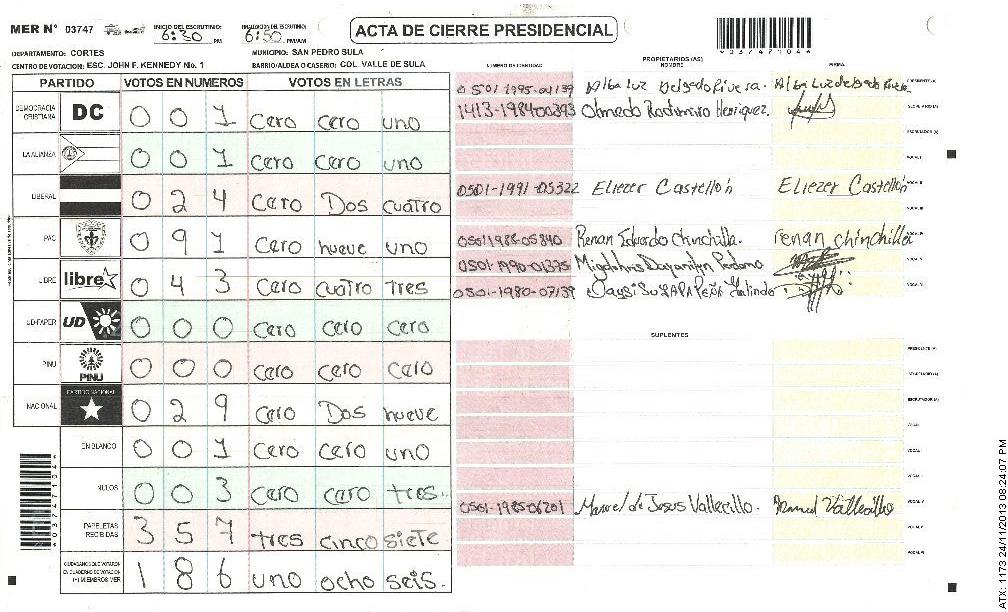 MER N° 03747
INICIO DEL ESCRUTINIO: 6:30 PM
FINALIZACION DEL ESCRUTINIO: 6:50 PM/AM
ACTA DE CIERRE PRESIDENCIAL
DEPARTAMENTO: CORTES
MUNICIPIO: SAN PEDRO SULA
CENTRO DE VOTACION: ESC. JOHN F. KENNEDY No. 1
BARRIO/ALDEA O CASERIO: COL. VALLE DE SULA
PARTIDO VOTOS EN NUMEROS VOTOS EN LETRAS
DEMOCRACIA CRISTIANA DC 0 0 1 cero cero uno
LA ALIANZA 0 0 1 cero cero uno
LIBERAL 0 2 4 cero Dos cuatro
PAC 0 9 1 cero nueve uno
LIBRE libre 0 4 3 cero cuatro tres
UD-FAPER UD 0 0 0 cero cero cero
PINU PINU 0 0 0 cero cero cero
NACIONAL PARTIDO NACIONAL 0 2 9 cero Dos nueve
EN BLANCO 0 0 1 cero cero uno
NULOS 0 0 3 cero cero tres.
PAPELETAS RECIBIDAS 3 5 7 tres cinco siete
CIUDADANOS QUE VOTARON EN CUADERNO DE VOTACION (+) MIEMBROS MER 1 8 6 uno ocho seis.
NUMERO DE IDENTIDAD PROPIETARIOS (AS) NOMBRE FIRMA
0501-1995-04139 Alba Luz Delgado Rivera. Alba Luz delgado Rivera PRESIDENTE (A)
1413-1984-00393 Olmedo Henriquez. SECRETARIO (A)
ESCRUTADOR (A)
VOCAL I
0501-1991-05322 Eliezer Castellón Eliezer Castellón VOCAL II
VOCAL III
05011988-05840 Renan Eduardo Chinchilla. renan chinchilla VOCAL IV
0501-1990-01375 Perdomo VOCAL V
0501-1980-07139 Daysi Peña Galindo VOCAL VI
SUPLENTES
PRESIDENTE (A)
SECRETARIO (A)
ESCRUTADOR (A)
VOCAL I
VOCAL II
VOCAL III
0501-1985-06201 Manuel de Jesus Vallecillo. Manuel Vallecillo VOCAL IV
VOCAL V
VOCAL VI
ATX: 1173 24/11/2013 08:24:07 PM